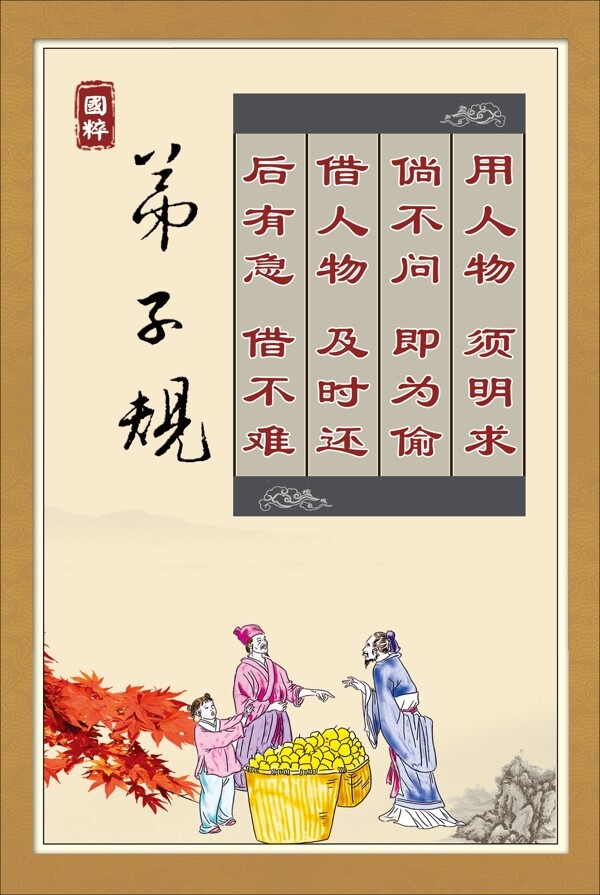 國粹
弟子规
用人物 须明求
倘不问 即为偷
借人物 及时还
后有急 借不难